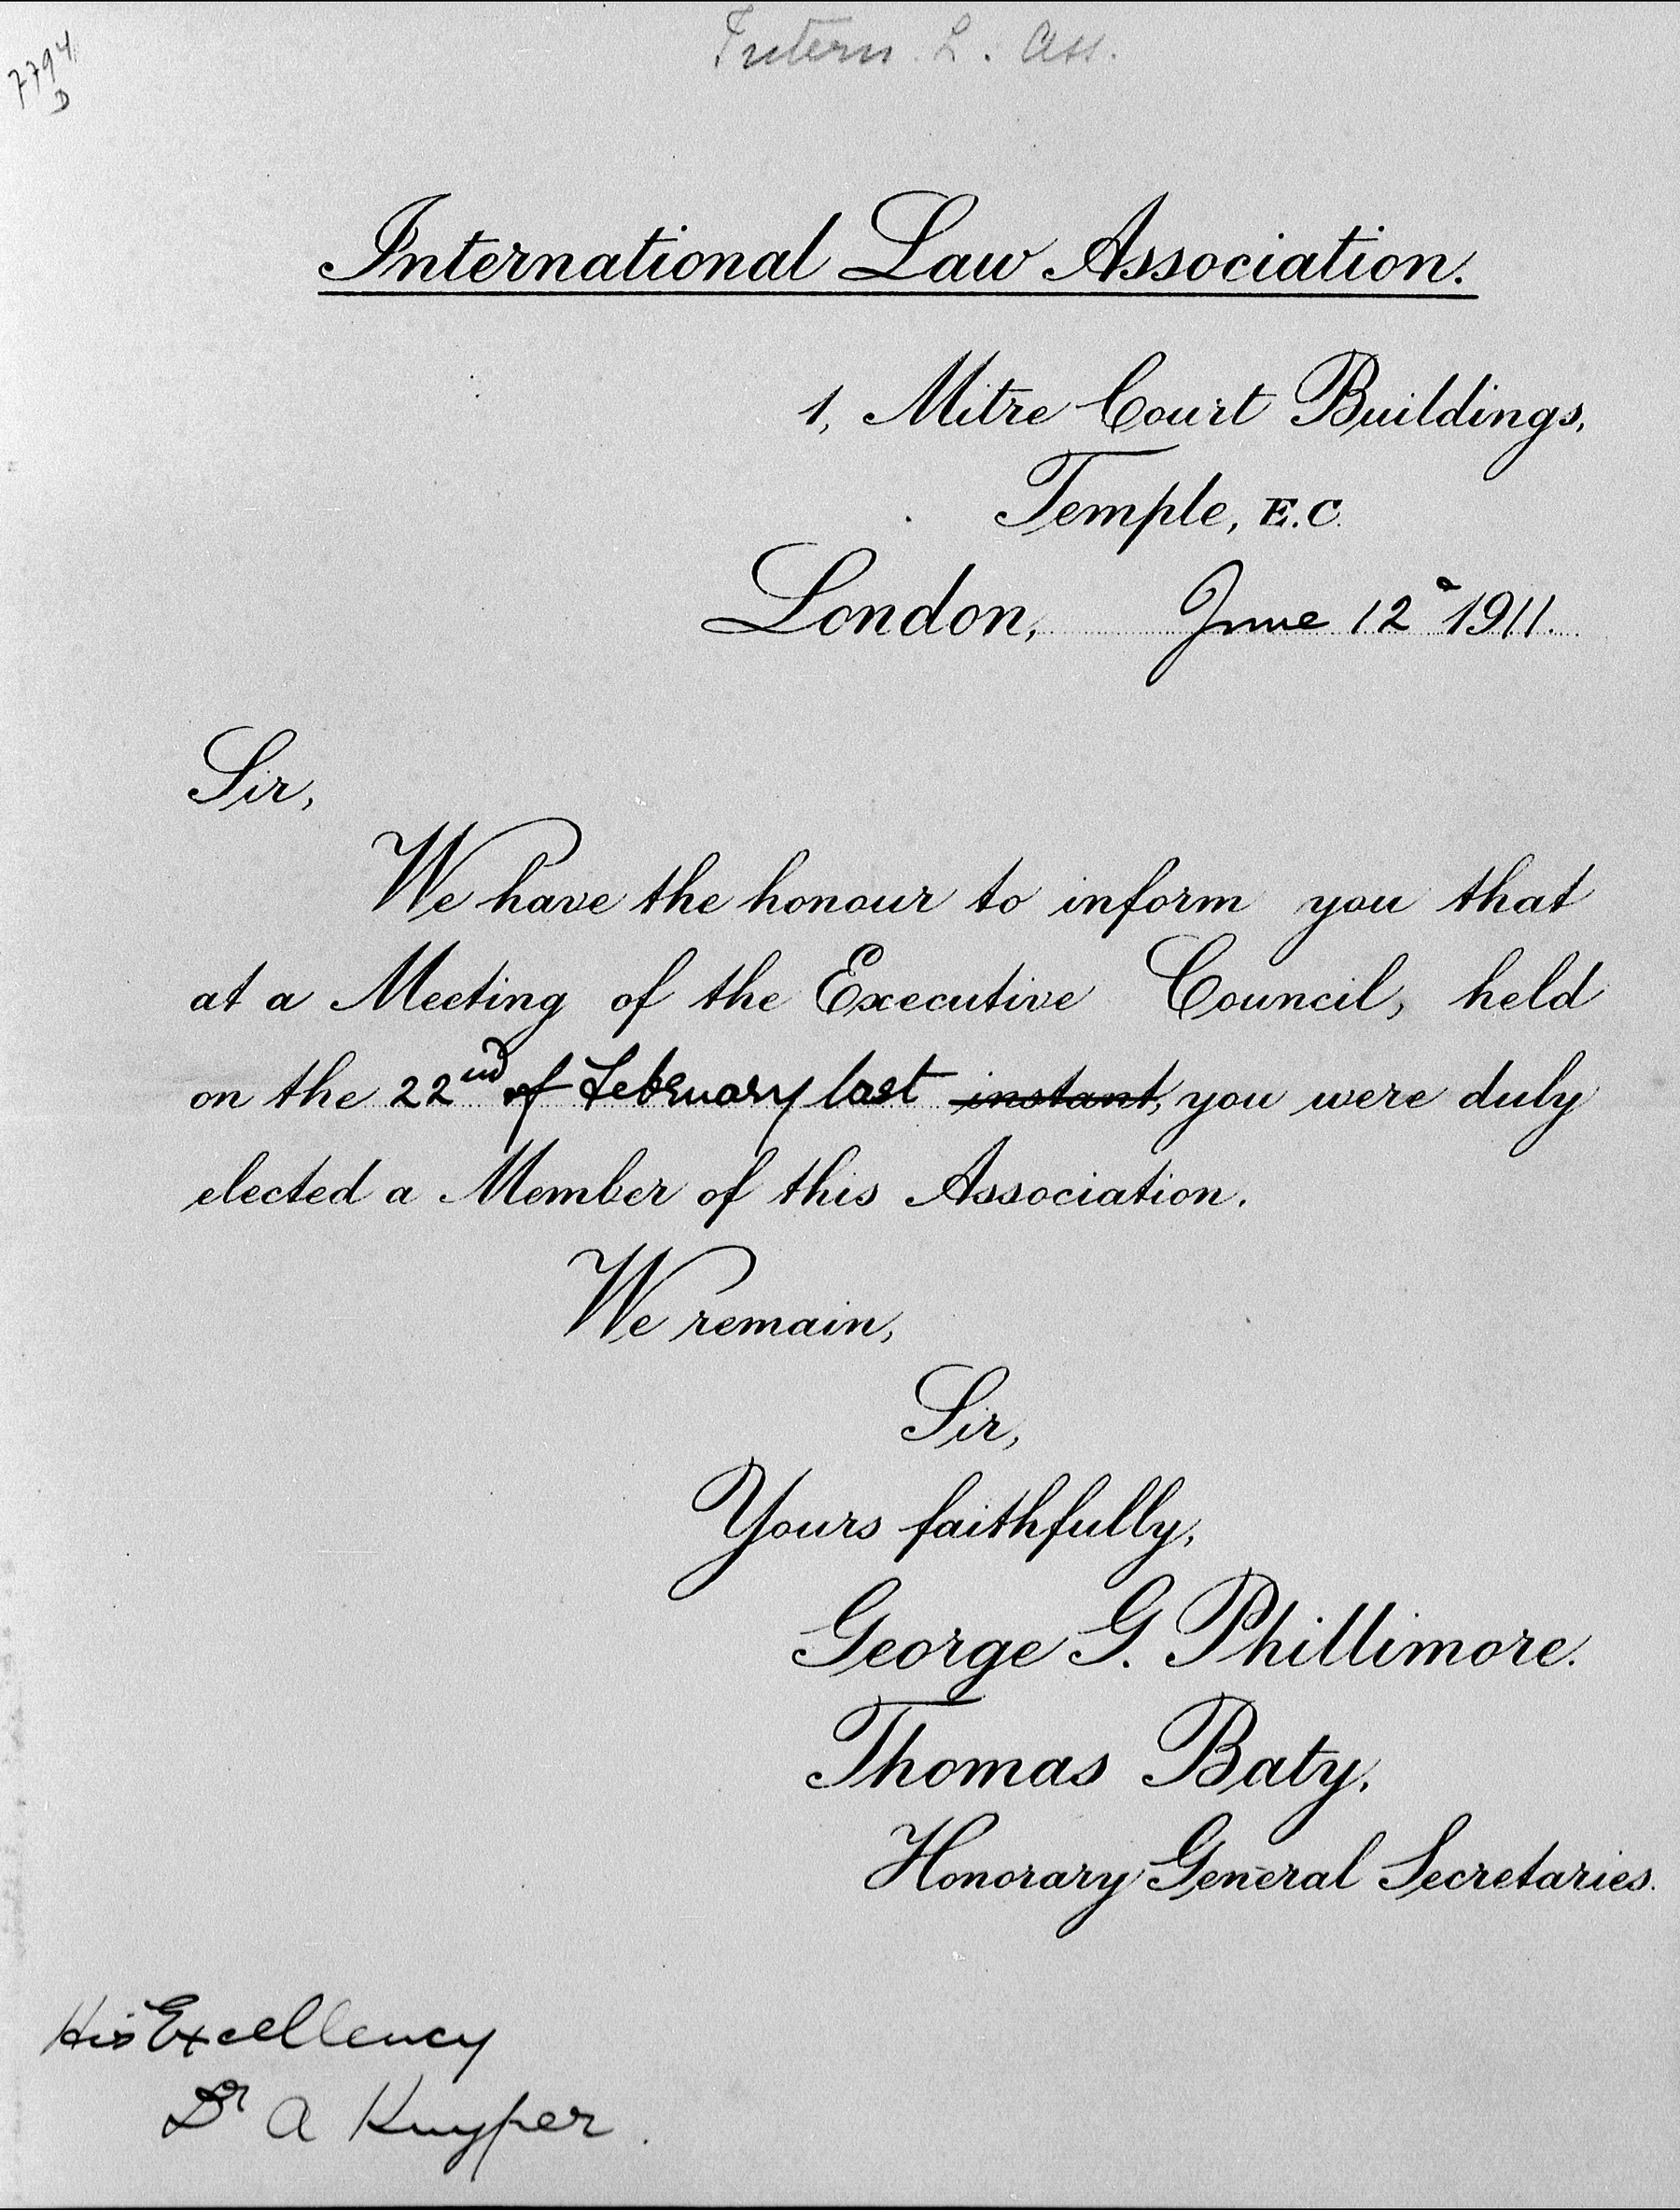 7794
D
Intern. L. Ass.
International Law Association.
1, Mitre Court Buildings,
Temple, E.C.
London, June 12 1911.
Sir,
We have the honour to inform you that
at a Meeting of the Executive Council, held
on the 22nd of February last instant, you were duly
elected a Member of this Association.
We remain,
Sir,
Yours faithfully,
George G. Phillimore.
Thomas Baty,
Honorary General Secretaries.
His Excellency
Dr A Kuyper.